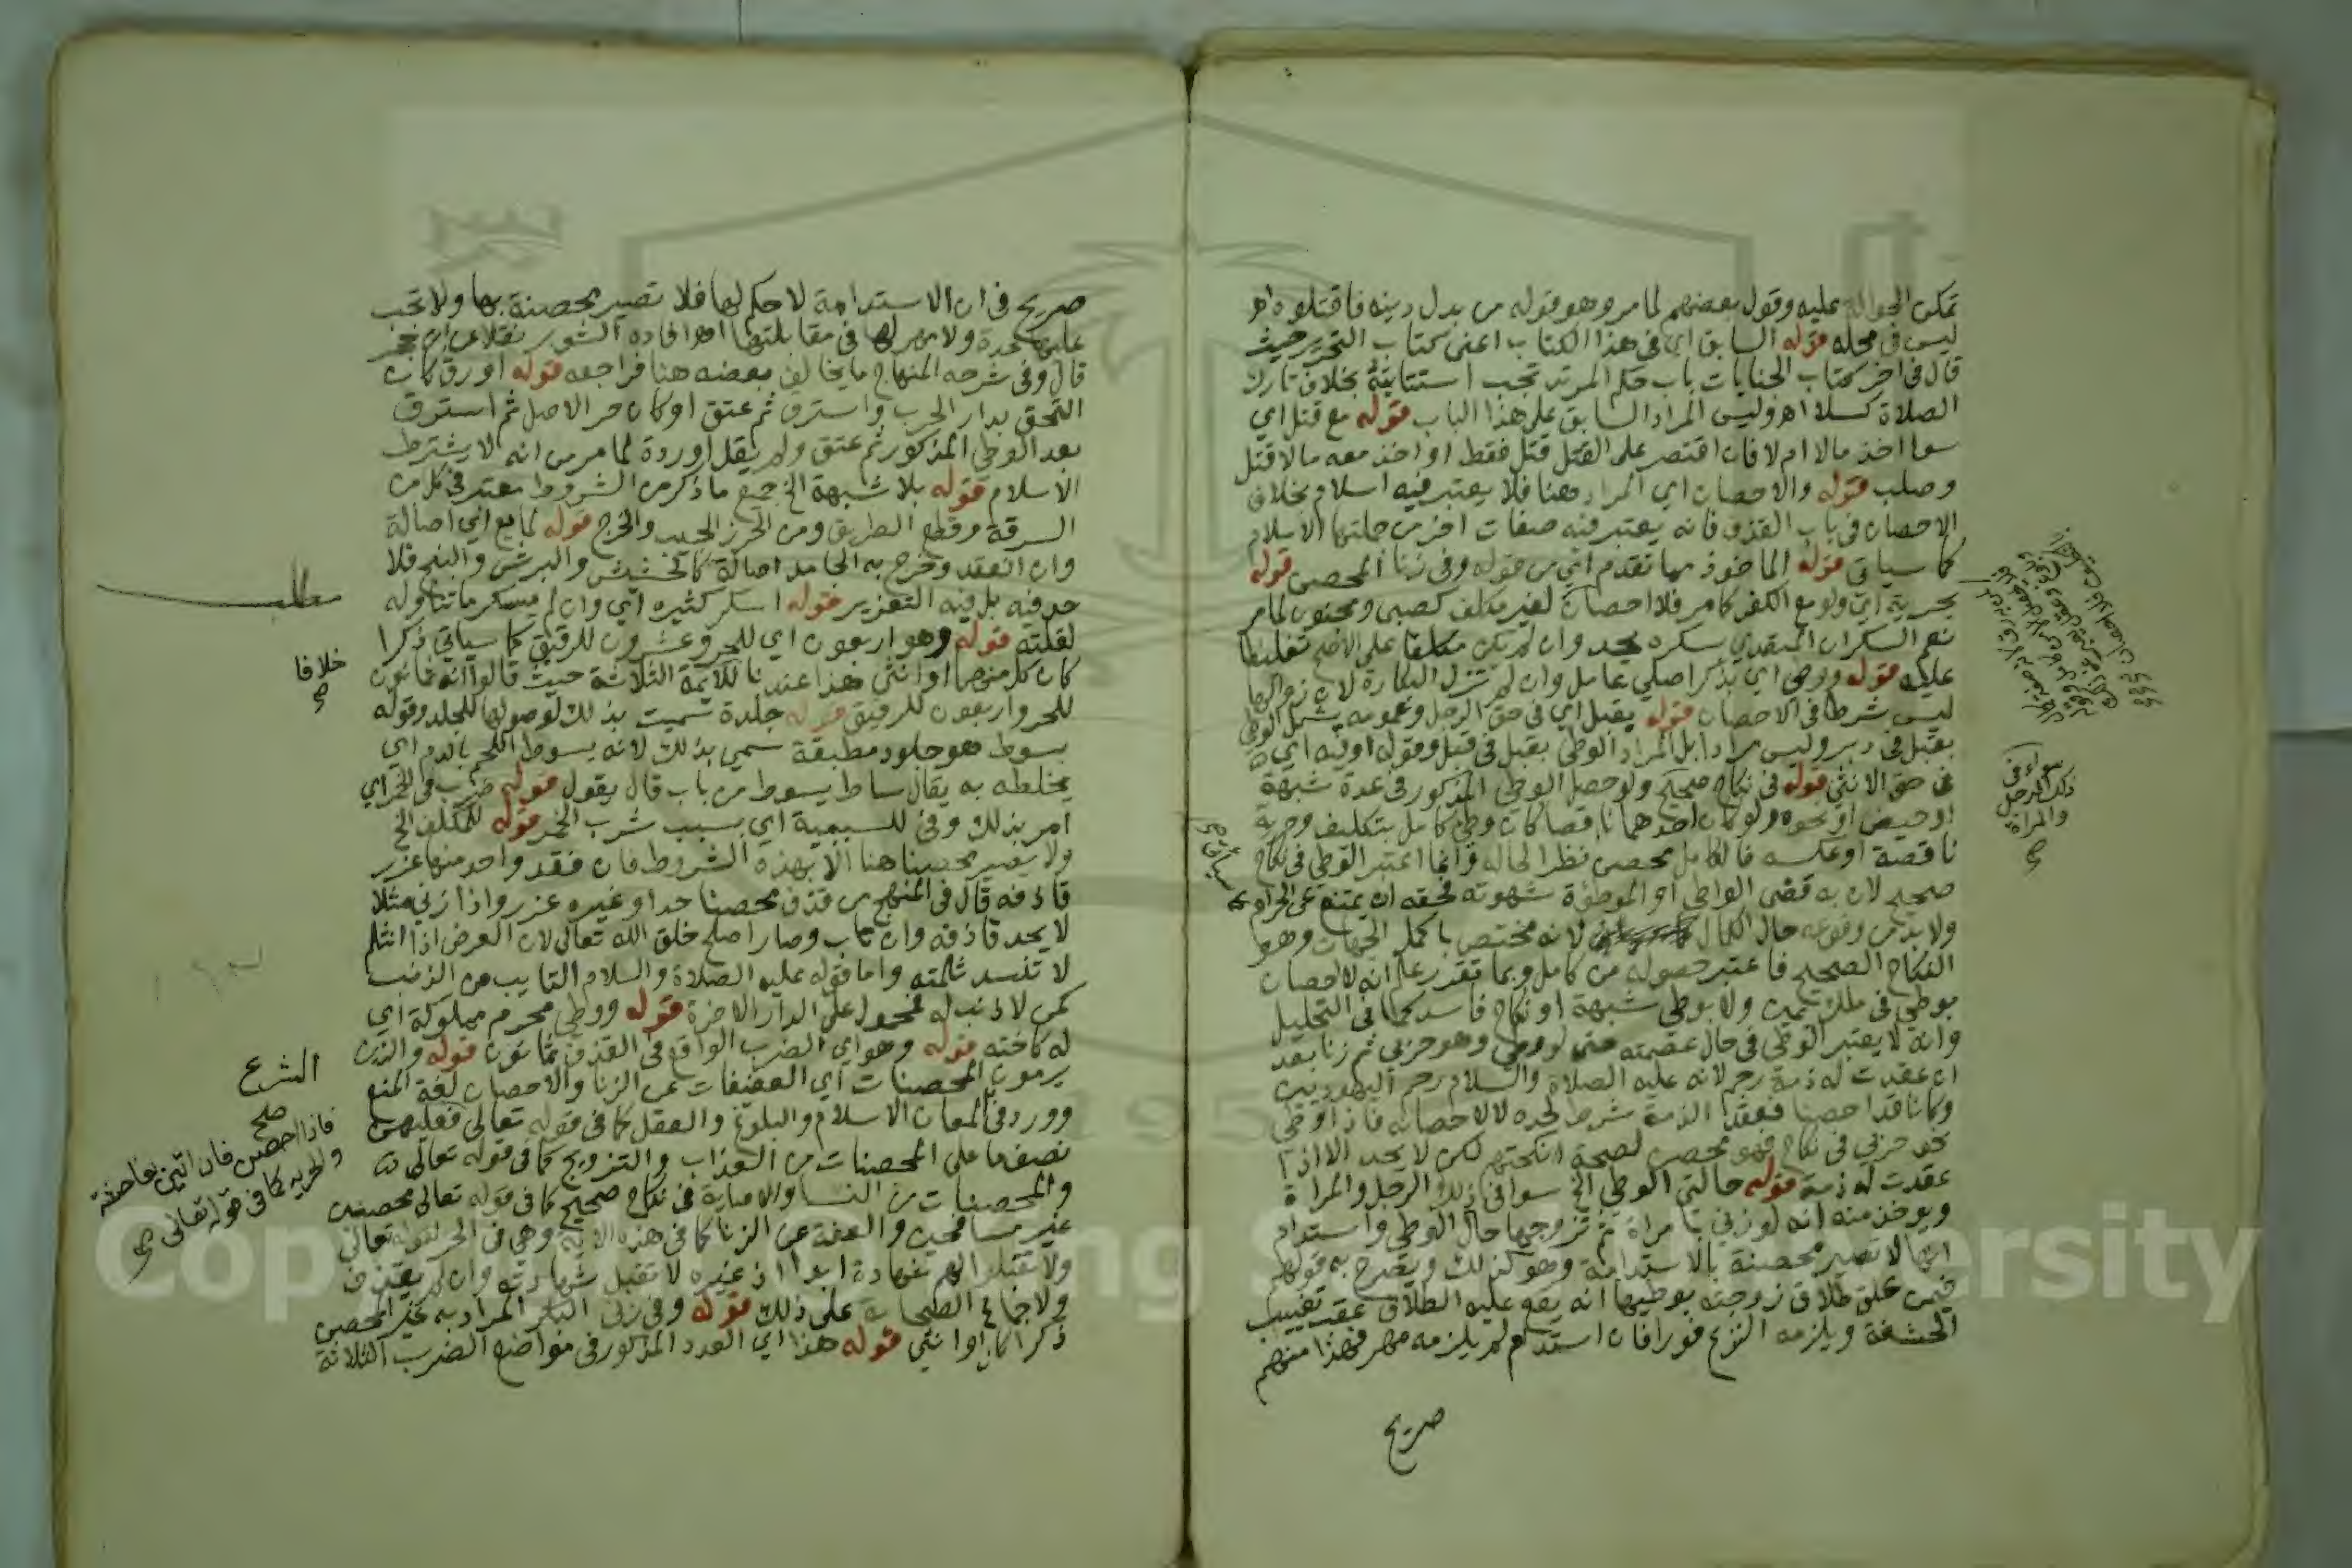 تمكن الحوالة عليه وقول بعضهم لما مر وهو قوله من بدل دينه فاقتلوه اهـ
ليس في محله قوله السابق اي في هذا الكتاب اعني كتاب التحرير حيث
قال في اخر كتاب الجنايات باب حكم المرتد تجب استتابته بخلاف تارك
الصلاة كسلا اهـ وليس المراد السابق على هذا الباب قوله مع قتل اي
سوا اخذ مالا ام لا فان اقتصر على القتل قتل فقط او اخذ معه مالا قتل
وصلب قوله والاحصان اي المراد هنا فلا يعتبر فيه اسلام بخلاف
الاحصان في باب القذف فانه يعتبر فيه صفات اخر من جملتها الاسلام
كما سياتي قوله الماخوذ مما تقدم اي من قوله وفي زنا المحصن قوله
بحرية اي ولو مع الكفر كما مر فلا احصان لغير مكلف كصبي ومجنون لما مر
نعم السكران المتعدي بسكره يحد وان لم يكن مكلفا على الاصح تغليظا
عليه قوله ووطي اي بذكر اصلي عامل وان لم تزل البكارة لان زوالها
ليس شرطا في الاحصان قوله يقبل اي في حق الرجل وعمومه يشمل الوطي
بقبل في دبر وليس مرادا بل المراد الوطي بقبل في قبل وقوله اوليه اي
في حق الانثى قوله في نكاح صحيح ولو حصل الوطي المذكور في عدة شبهة
او حيض او نحوه ولو كان احدهما ناقصا كان وطي كامل بتكليف وحرية
ناقصة او عكسه فالكامل محصن نظرا لحاله وانما اعتبر الوطي في نكاح
صحيح لان به قضى الواطي او الموطؤة شهوته فحقه ان يمتنع عن الحرام
ولا بد من وقوعه حال الكمال لانه مختص باكمل الجهات وهو
النكاح الصحيح فاعتبر حصوله من كامل وبما تقرر علم انه لا احصان
بوطي في ملك يمين ولا بوطي شبهة او نكاح فاسد كما في التحليل
وانه لا يعتبر الوطي في حال عصمته حتى لو وطي وهو حربي ثم زنا بعد
ان عقدت له ذمة رجم لانه عليه الصلاة والسلام رجم اليهوديين
وكانا قد احصنا فعقد الذمة شرط لحده لا لاحصانه فاذا وطي
نحو حربي في نكاح فهو محصن لصحة انكحتهم لكن لا يحد الا اذا
عقدت له ذمة قوله حالتي الوطي الخ سوا في ذلك الرجل والمراة
ويوخذ منه انه لو زنى بامراة ثم تزوجها حال الوطي واستدام
انها لا تصير محصنة بالاستدامة وهو كذلك ويصرح به قولهم
فيمن علق طلاق زوجته بوطيها انه يقع عليه الطلاق عقب تغييب
الحشفة ويلزمه النزع فورا فان استدام لم يلزمه مهر فهذا منهم
صريح
سواء في
ذلك الرجل
والمراة
صح
صريح في ان الاستدامة لا حكم لها فلا تصير محصنة بها ولا تجب
عليها عدة ولا مهر لها في مقابلتها اهـ افاده الشوبري نقلا عن ابن حجر
قال وفي شرحه المنهاج ما يخالف بعضه هنا فراجعه قوله او رق كان
التحق بدار الحرب واسترق ثم عتق او كان حر الاصل ثم استرق
بعد الوطي المذكور ثم عتق ولم يقل او ردة لما مر من انه لا يشترط
الاسلام قوله بلا شبهة الخ جميع ما ذكر من الشروط معتبر في كل من
السرقة وقطع الطريق ومن الحرز الجيب والخرج قوله لمايع اي اصالة
وان انعقد وخرج به الجامد اصالة كالحشيش والبرش والبنج فلا
حد فيه بل فيه التعزير قوله اسكر كثيره اي وان لم يسكر ما تناوله
لقلته قوله وهو اربعون اي للحر وعشرون للرقيق كما سياتي ذكرا
كان كل منهما او انثى هذا عندنا للايمة الثلاثة حيث قالوا انه ثمانون
للحر واربعون للرقيق قوله جلدة سميت بذلك لوصولها للجلد وقوله
بسوط هو جلود مطبقة سمي بذلك لانه يسوط اللحم بالدم اي
يخلطه به يقال ساط يسوط من باب قال يقول قوله ضرب في الخمر اي
امر بذلك وفي للسببية اي بسبب شرب الخمر قوله للمكلف الخ
ولا يصير محصنا هنا الا بهذه الشروط فان فقد واحد منها عزر
قاذفه قال في المنهج من قذف محصنا حد او غيره عزر واذا زنى مثلا
لا يحد قاذفه وان تاب وصار اصلح خلق الله تعالى لان العرض اذا انثلم
لا تنسد ثلمته واما قوله عليه الصلاة والسلام التايب من الذنب
كمن لا ذنب له فمحمول على الدار الاخرة قوله ووطي محرم مملوكة اي
له كاخته قوله وهو اي الضرب الواقع في القذف ثمانون قوله والذين
يرمون المحصنات اي العفيفات عن الزنا والاحصان لغة المنع
وورد في لمعان الاسلام والبلوغ والعقل كما في قوله تعالى فعليهن
نصف ما على المحصنات من العذاب والتزويج كما في قوله تعالى
والمحصنات من النسا والاصابة في نكاح صحيح كما في قوله تعالى محصنين
غير مسافحين والعفة عن الزنا كما في هذه الاية وهي في الحر لقوله تعالى
ولا تقبلوا لهم شهادة ابدا اذ غيره لا تقبل شهادته وان لم يقذف
ولاجماع الصحابة على ذلك قوله وفي زنى البكر المراد به غير المحصن
ذكرا كان او انثى قوله هذا اي العدد المذكور في مواضع الضرب الثلاثة
مطلب
خلافا
صح
الشرع
صح
فاذا احصن فان اتين بفاحشة
والحرية كما في قوله تعالى
صح
Copyright © King Saud University
195